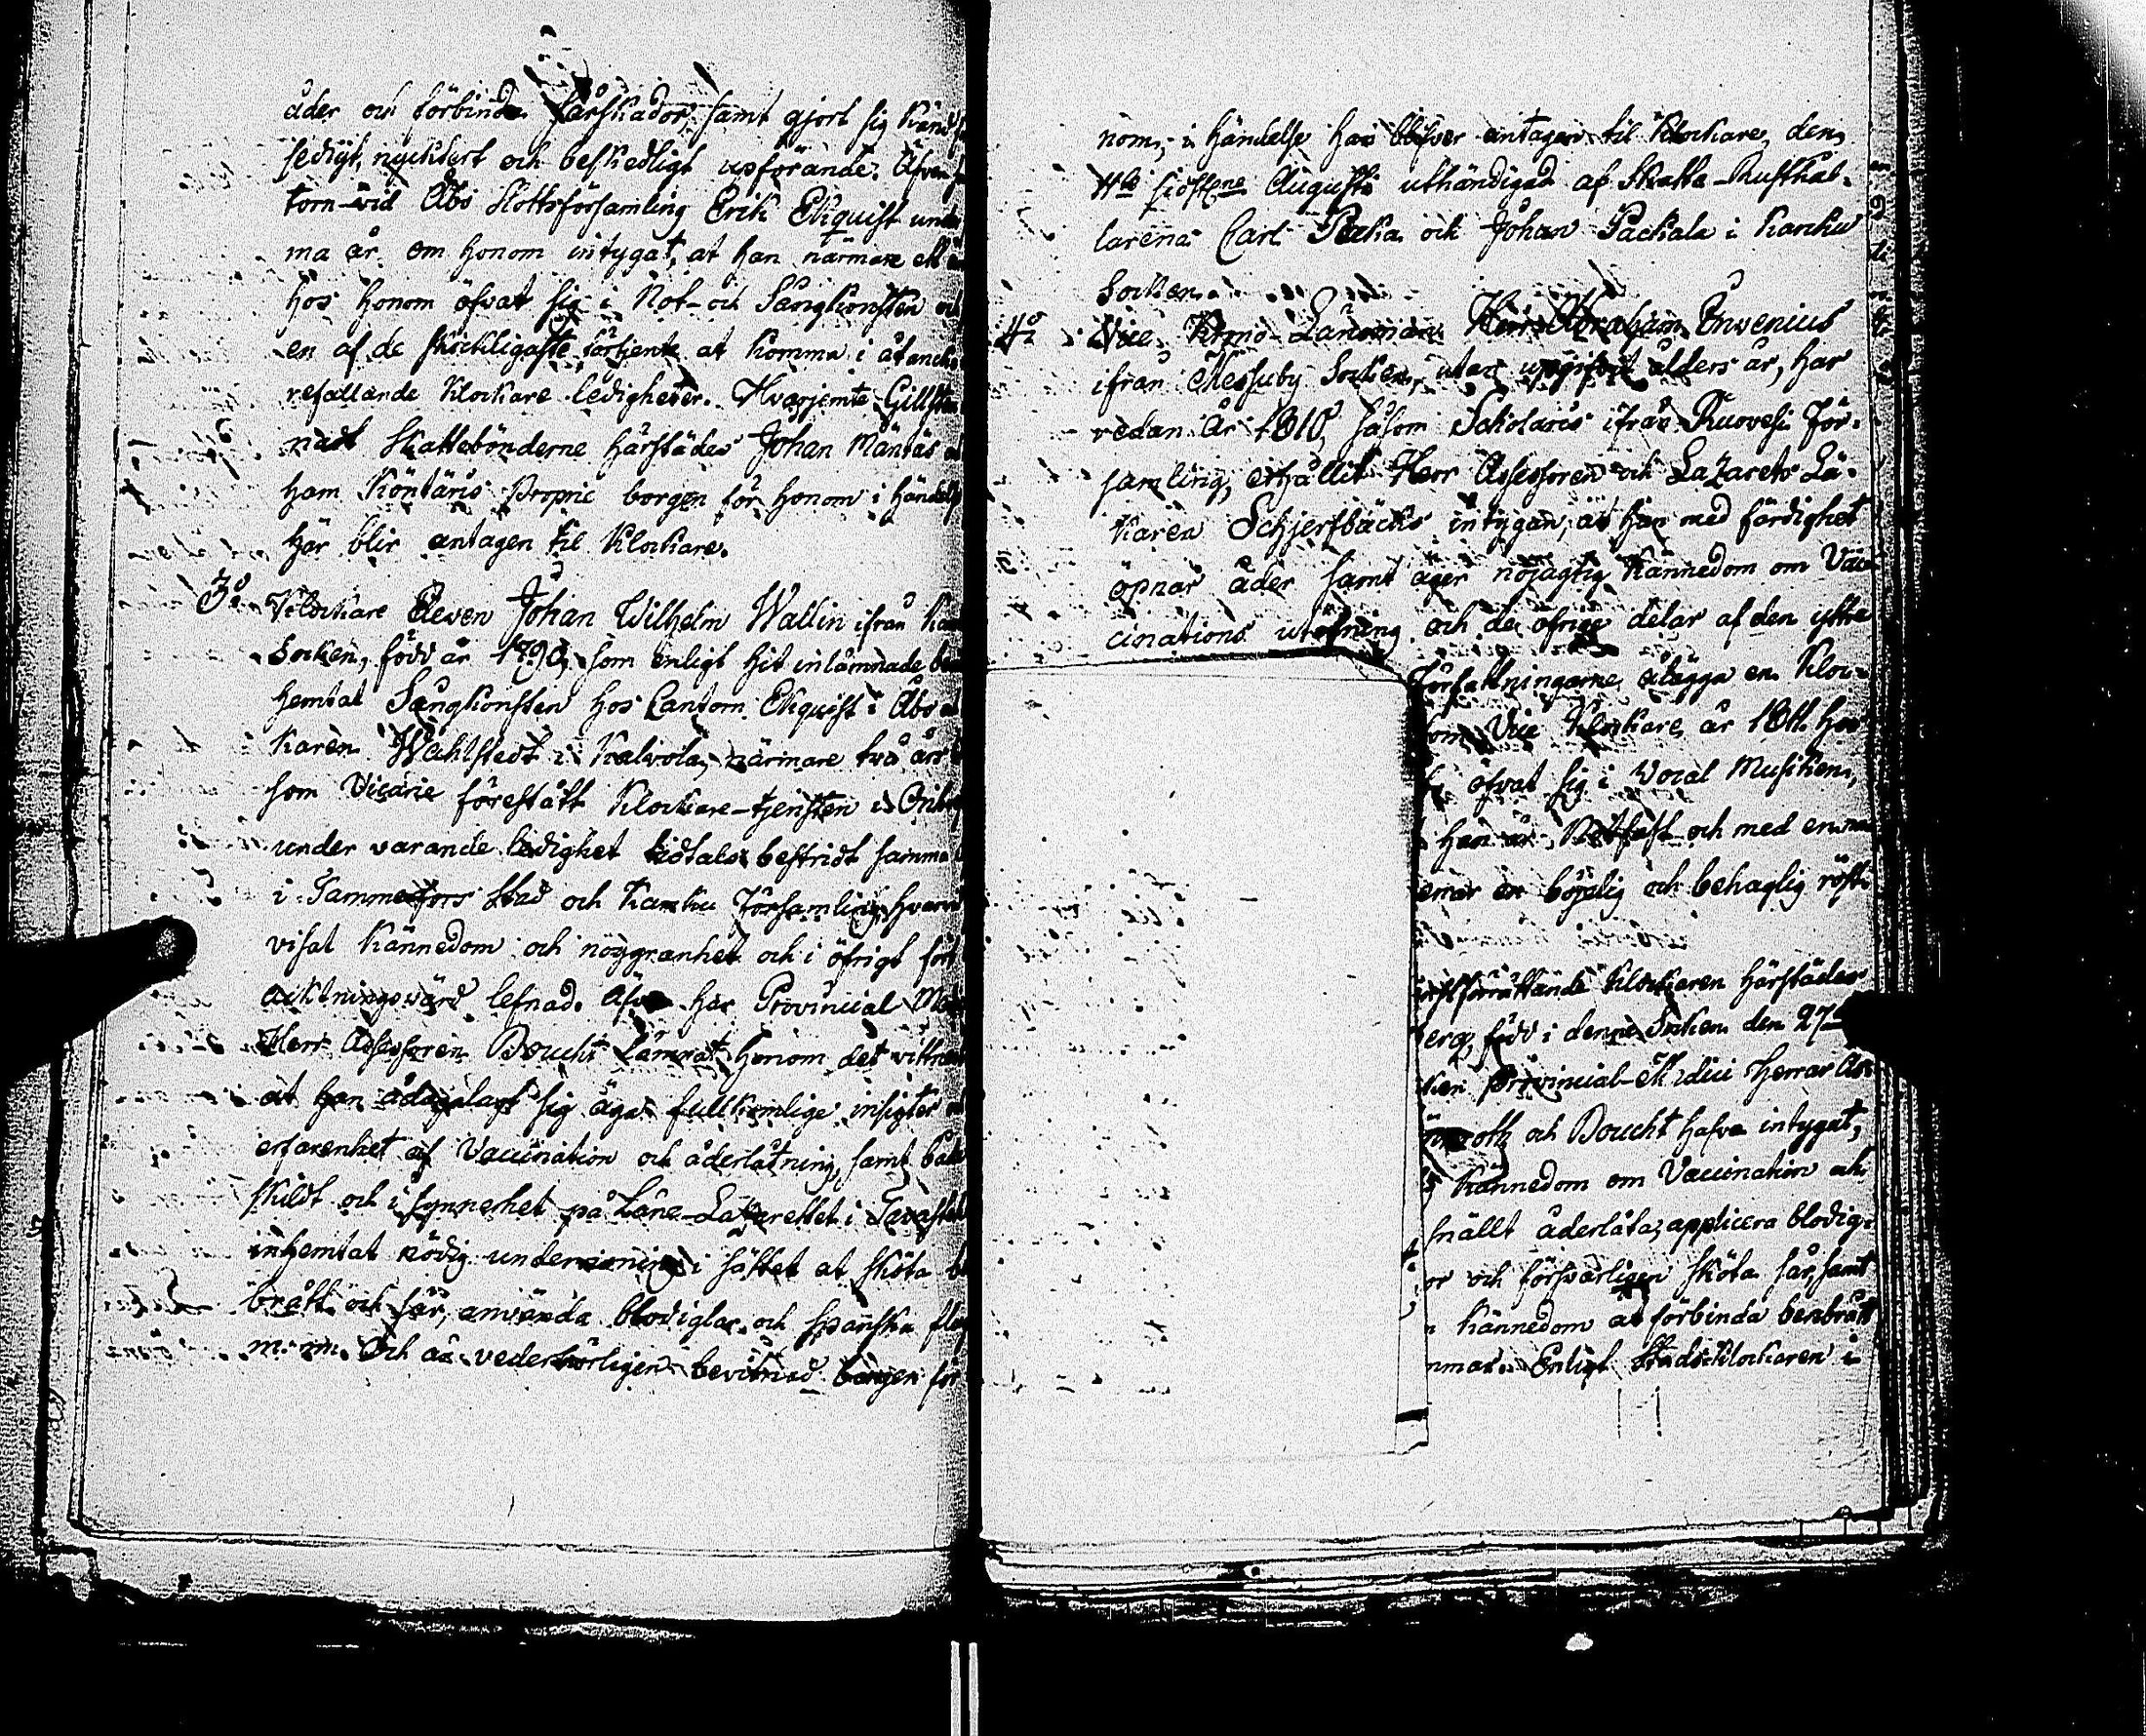 åder och förbinda sårskador, samt gjort sig känd
sedigt, nycktert och beskedligt upförande. Äfven
torn vid Åbo Slottsförsamling Erik Ekquist und
ma år om honom intygat, at han närmare ett
hos honom öfvat sig i Not- och Sångkonsten och
en af de skickligaste förtjent at komma i åtanck
refallande Klockare ledigheter. Hvarjemte Gillst
nadt Skattebönderne härstädes Johan Mäntäs
ham Köntäris Proprie borgen för honom i händels
här blir antagen til Klockare.
3o Klockare Eleven Johan Wilhelm Wallin ifrån Ka
Socken, född år 1790, som enligt hit inlämnade be
hemtat Sångkonsten hos Cantorn Ekquist i Åbo
karen Wahlstedt i Kalvola, närmare två års
som Vicarie förestått Klockare-tjensten i
under varande ledighet bestridt samma
i Tammerfors Stad och Karku Församling, hvar
visat kännedom och noggranhet och i öfrigt fört
acktningsvärd lefnad. Äfven har Provincial Med
Herr Assessoren Boucht lämnat honom det vittne
at han ådagalagt sig äga fullkomlige insigter
erfarenhet af Vaccination och åderlåtning, samt
skildt och i synnerhet på Läns-Lazarettet i Tavast
inhemtat nödig undervisning i sättet at sköta b
brått och sår, använda blodiglar och spanska flug
m.m. Och är vederbörligen bevitnad borgen för
nom, i händelse han blifver antagen til Klockare, den
sidstne Augusti uthändigad af Skatte-Rusthål-
larena Carl och Johan Packala i Karku
Socken.
4o Vice Krono Länsman Herr Abraham Enwenius
ifrån Messuby Socken, utan upgifvit ålders år, har
redan år 1810, såsom Scholaris ifrån Ruovesi För-
samling, erhållit Herr Assessoren och Lazarets Lä-
karen Schjerfbäcks intygan, at han med färdighet
öpnar åder samt äger nöjagtig kännedom om Vac-
cinations utöfning och de öfrige delar af den yttre
Författningarne ålägga en Kloc-
som Vice Klockare, år 1811 hos
öfvat sig i Vocal Musiken,
han är Notfast och med en
en böjelig och behaglig röst.
förrättande Klockaren härstädes
berg, född i denne Socken den 27
ken Provincial-Medici Herrar As
roth och Boucht hafva intygat,
kännedom om Vaccination och
snällt åderlåta, applicera blodig-
or och försvarligen sköta sår, samt
n kännedom at förbinda benbrått
mar. Enligt Stadsklockaren i